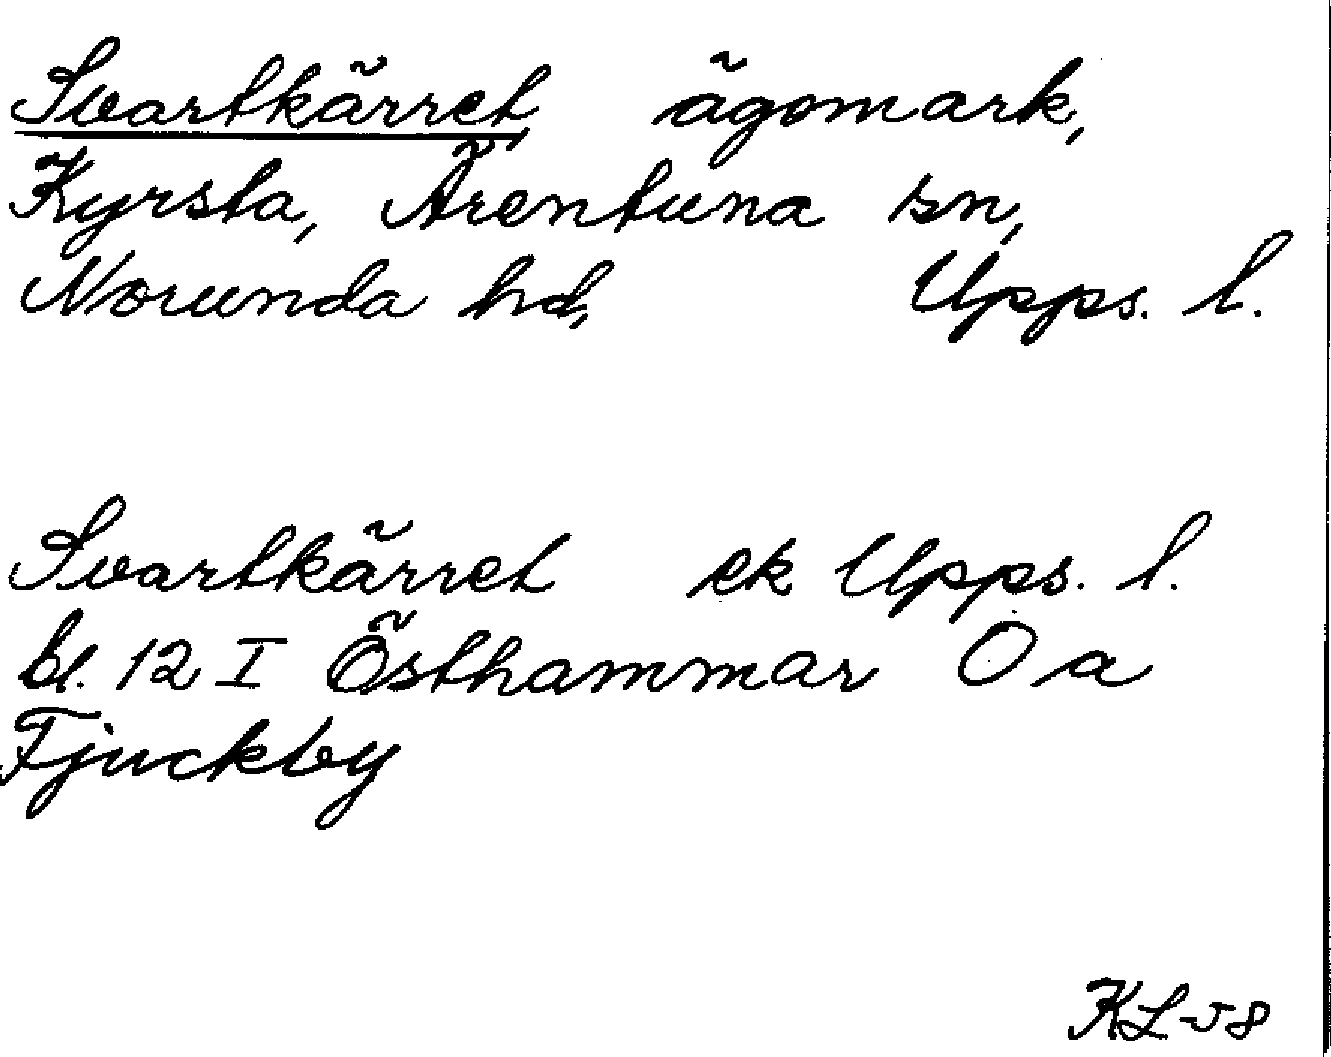 Svartkärret ägomark,
Kyrsta, Ärentuna sn,
Norunda hd, Upps. l.
Svartkärret ek Upps. l.
bl. 12 I Östhammar O a
Fjuckby
KL-58